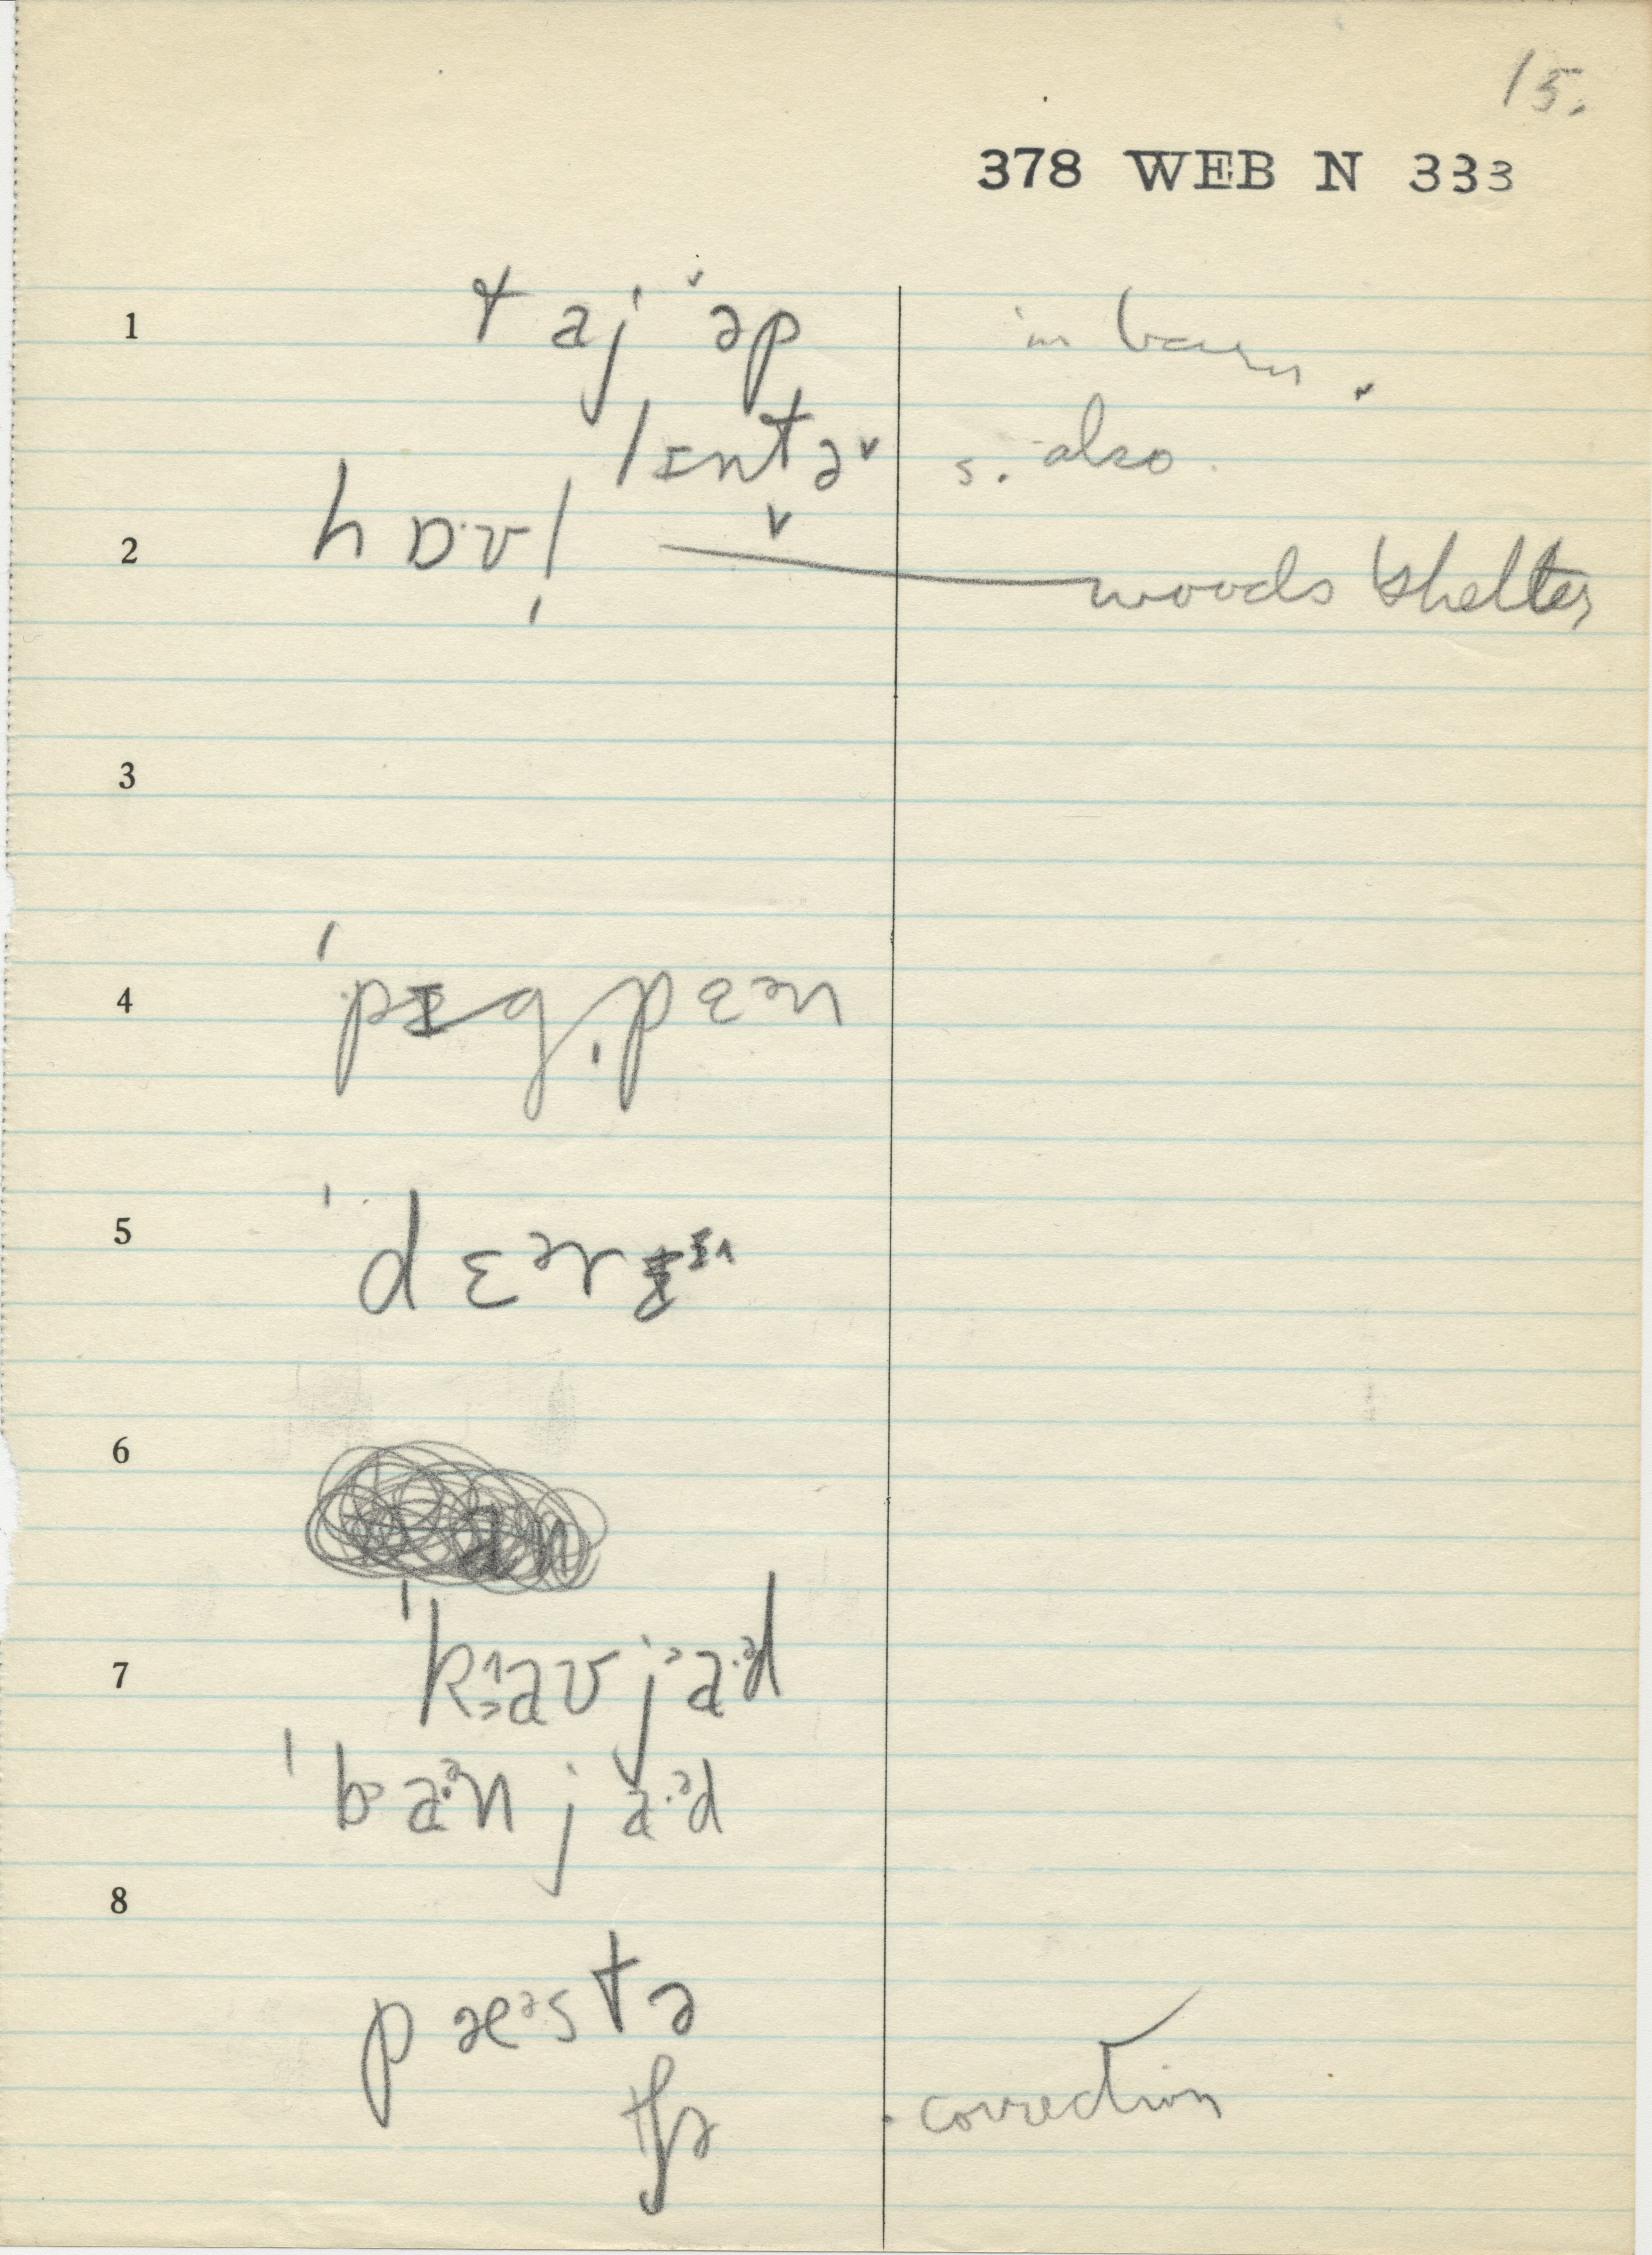 15.
378 WEB N 333
1 taj əp in barn
lɪntə s. also
2 hɒv| woods shelter
3
4 ˈpɪgˌpɛən
5 ˈdɛərɪ
6
7 ˈkaʊ ja·əd
ˈba·ən ja·əd
8
pæəstə
tʃə correction